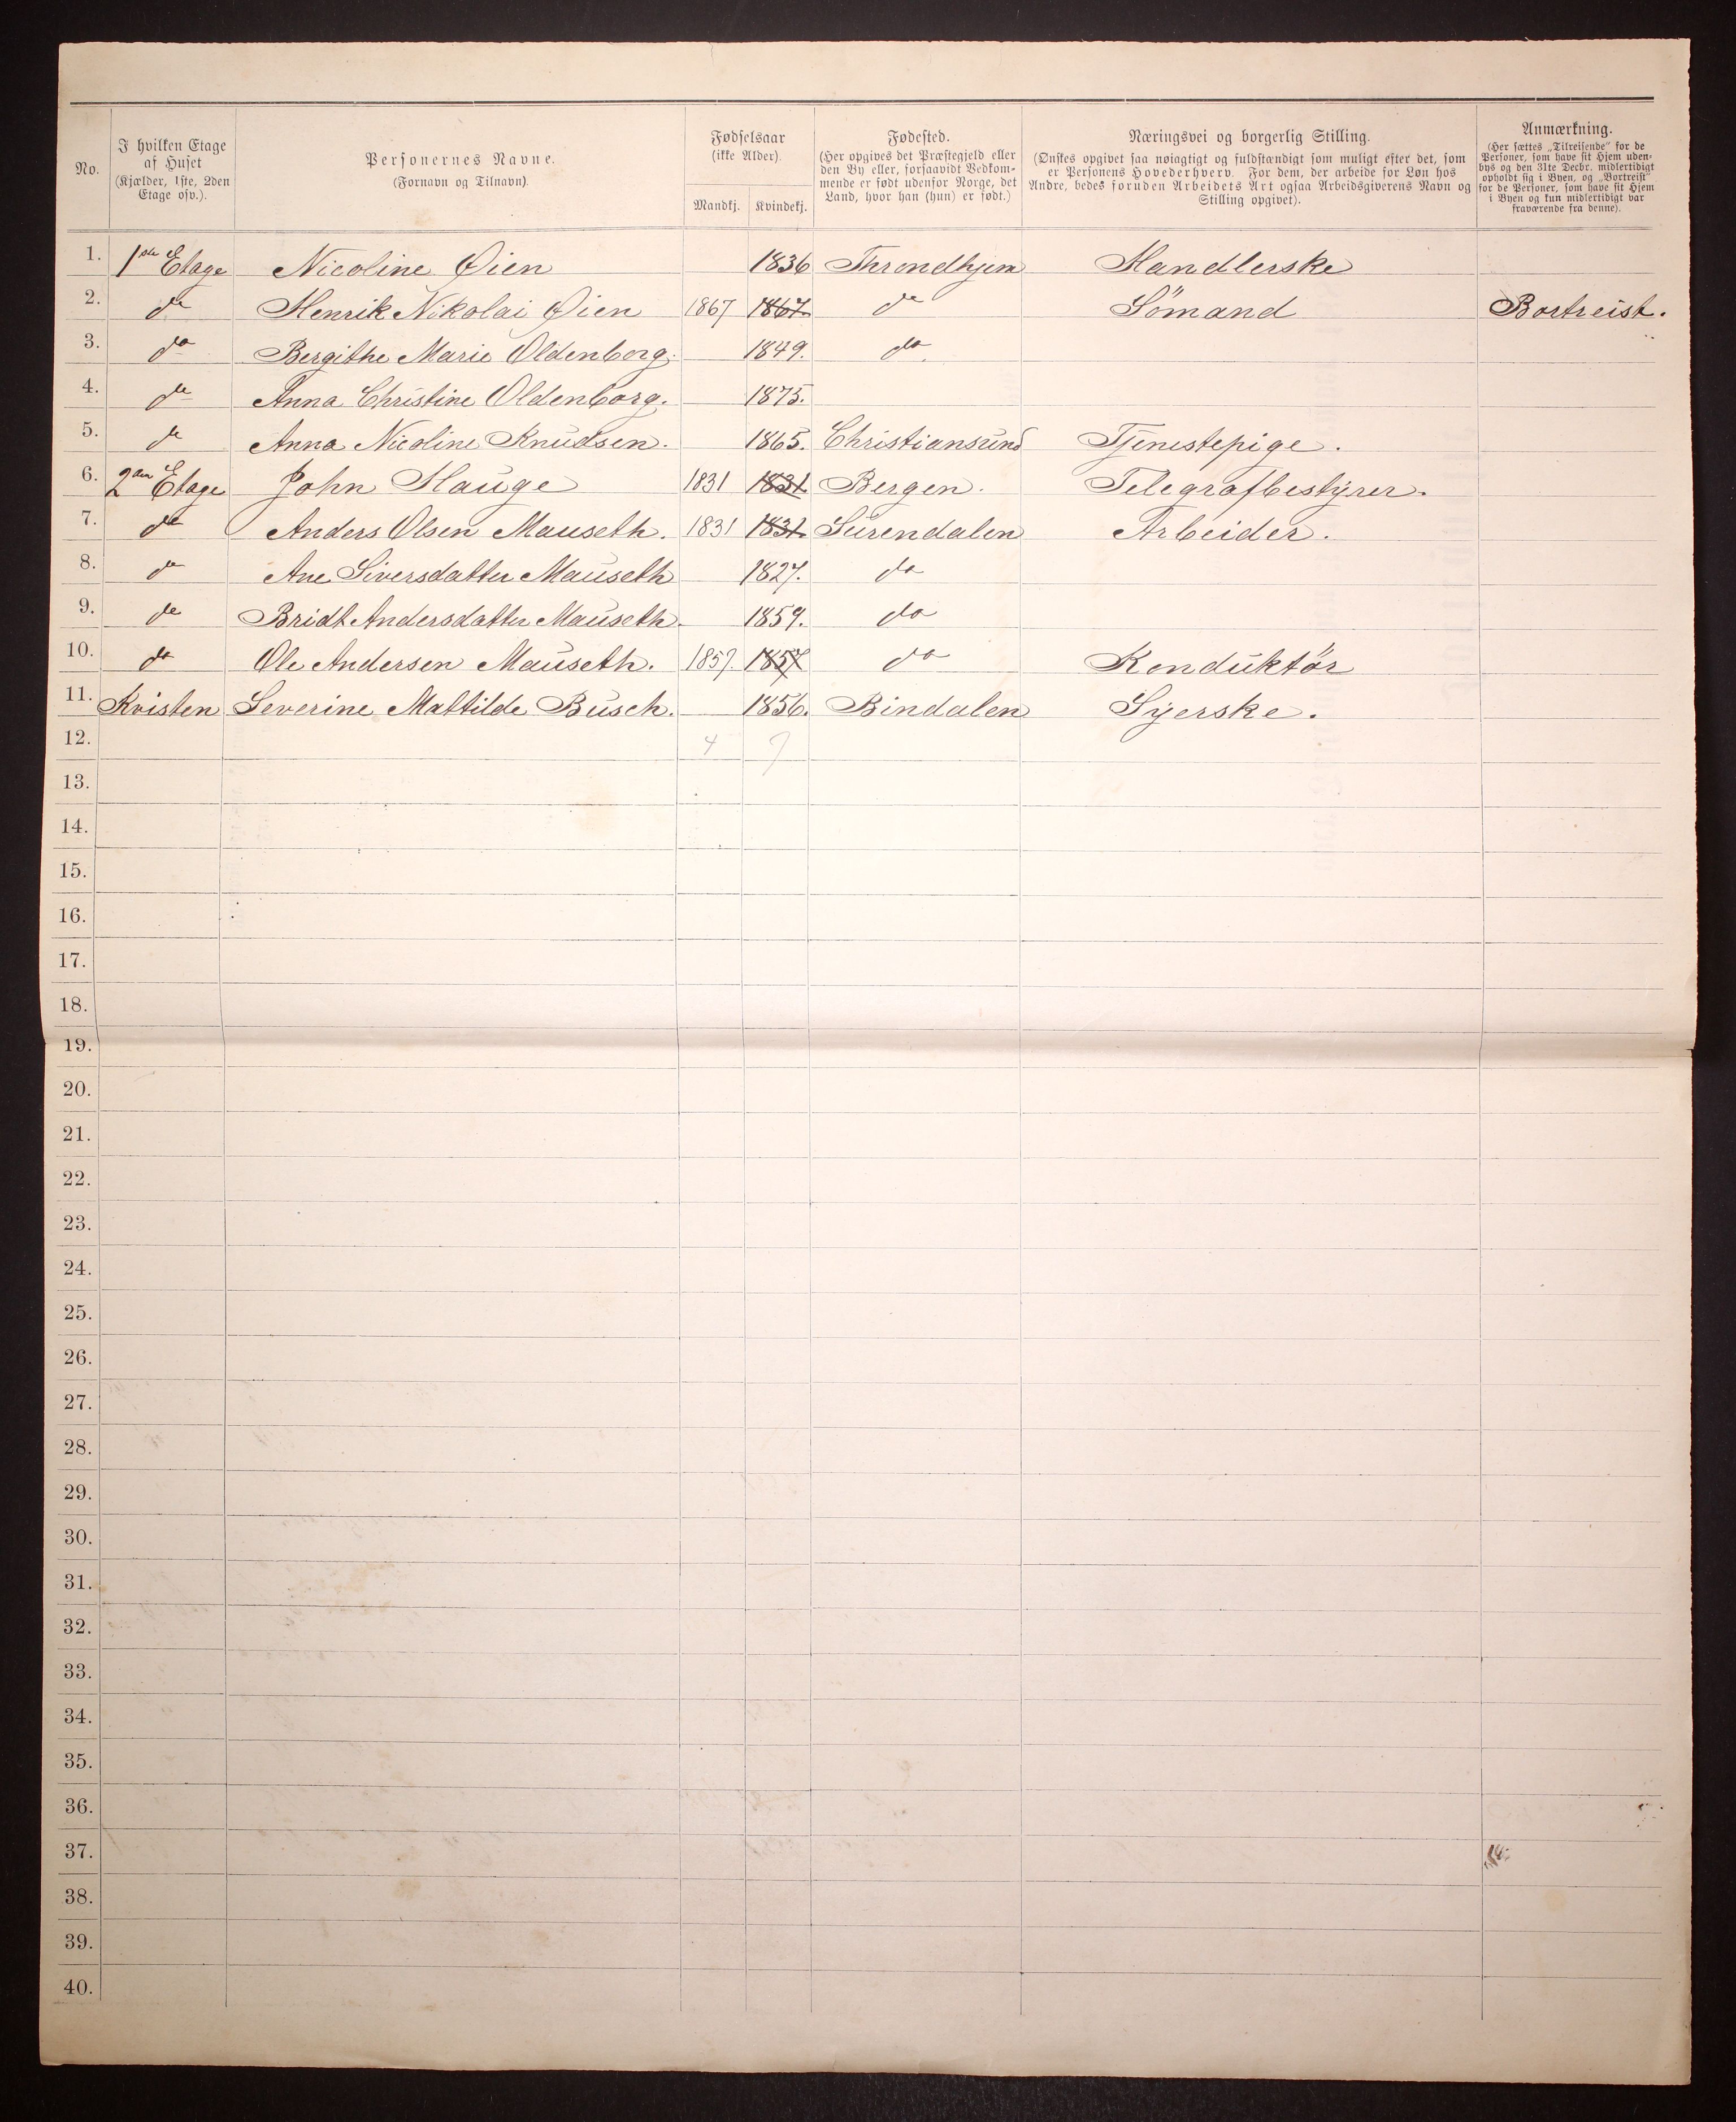 No.
I hvilken Etage
af Huset
(Kjælder, 1ste, 2den
Etage osv.).
Personernes Navne.
(Fornavn og Tilnavn).
Fødselsaar
(ikke Alder).
Mandkj. Kvindekj.
Fødested.
(Her opgives det Præstegjeld eller
den By eller, forsaavidt Vedkom-
mende er født udenfor Norge, det
Land, hvor han (hun) er født.)
Næringsvei og borgerlig Stilling.
(Ønskes opgivet saa nøiagtigt og fuldstændigt som muligt efter det, som
er Personens Hovederhverv. For dem, der arbeide for Løn hos
Andre, bedes foruden Arbeidets Art ogsaa Arbeidsgiverens Navn og
Stilling opgivet).
Anmærkning.
(Her sættes „Tilreisende" for de
Personer, som have sit Hjem uden-
bys og den 31te Decbr. midlertidigt
opholdt sig i Byen, og „Bortreist"
for de Personer, som have sit Hjem
i Byen og kun midlertidigt var
fraværende fra denne).
1. 1ste Etage Nicoline Øien 1836 Throndhjem Handlerske
2. do Henrik Nikolai Øien 1867 1867. do Sömand Bortreist.
3. do Bergithe Marie Oldenborg. 1849. do
4. do Anna Christine Oldenborg. 1875.
5. do Anna Nicoline Knudsen. 1865. Christiansund Tjenestepige.
6. 2den Etage John Hauge 1831 1831 Bergen. Telegrafbestyrer.
7. do Anders Olsen Mauseth. 1831 1831. Surendalen Arbeider.
8. do Ane Siversdatter Mauseth 1827. do
9. do Bridt Andersdatter Mauseth. 1859. do
10. do Ole Andersen Mauseth. 1857. 1857 do Konduktör
11. Kvisten Severine Mattilde Busch. 1856. Bindalen Syerske.
12. 4 7
13.
14.
15.
16.
17.
18.
19.
20.
21.
22.
23.
24.
25.
26.
27.
28.
29.
30.
31.
32.
33.
34.
35.
36.
37.
38.
39.
40.